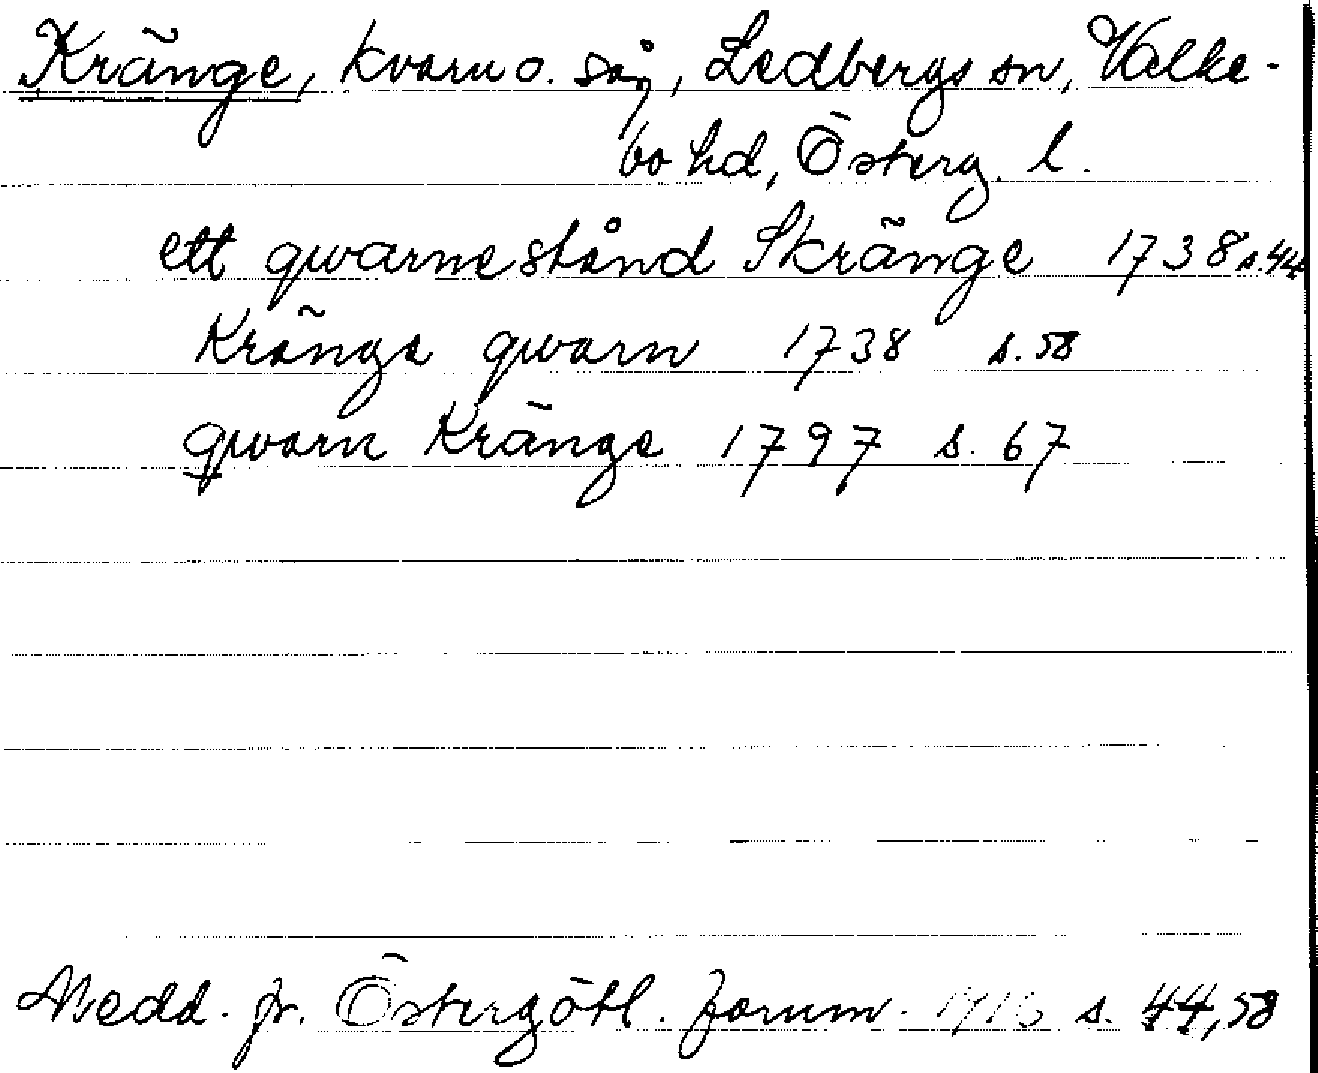 Kränge, kvarn o. såg, Ledbergs sn, Valke-
bo hd, Österg. l.
ett qwarnestånd Skränge 1738 s.44
Kränge qwarn 1738 s.58
qwarn Kränge 1797 s. 67
Medd. fr. Östergötl. fornm. s. 44, 58